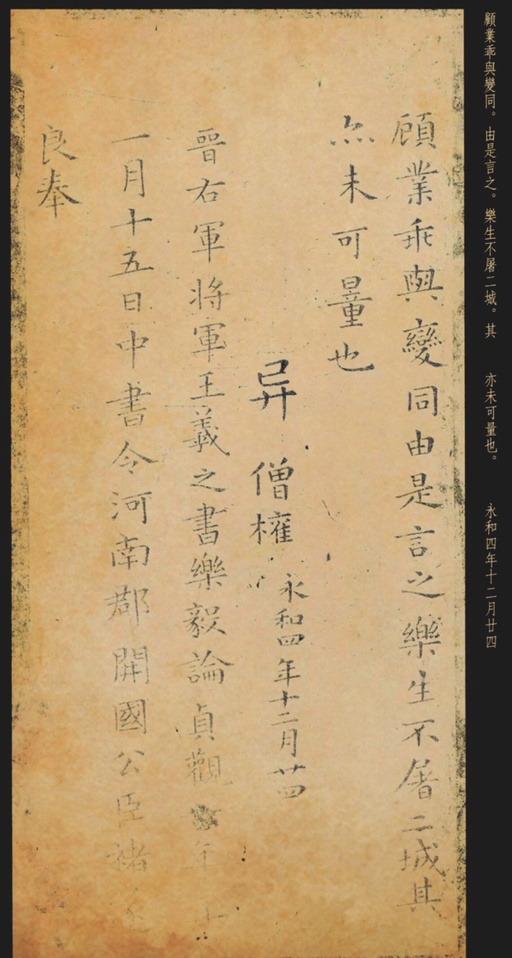 顧業乖與變同由是言之樂生不屠二城其
亦未可量也
异 僧權 永和四年十二月廿四
晉右軍将軍王羲之書樂毅論貞觀年十
一月十五日中書令河南郡開國公臣褚遂
良奉
顧業乖與變同。由是言之。樂生不屠二城。其 亦未可量也。 永和四年十二月廿四